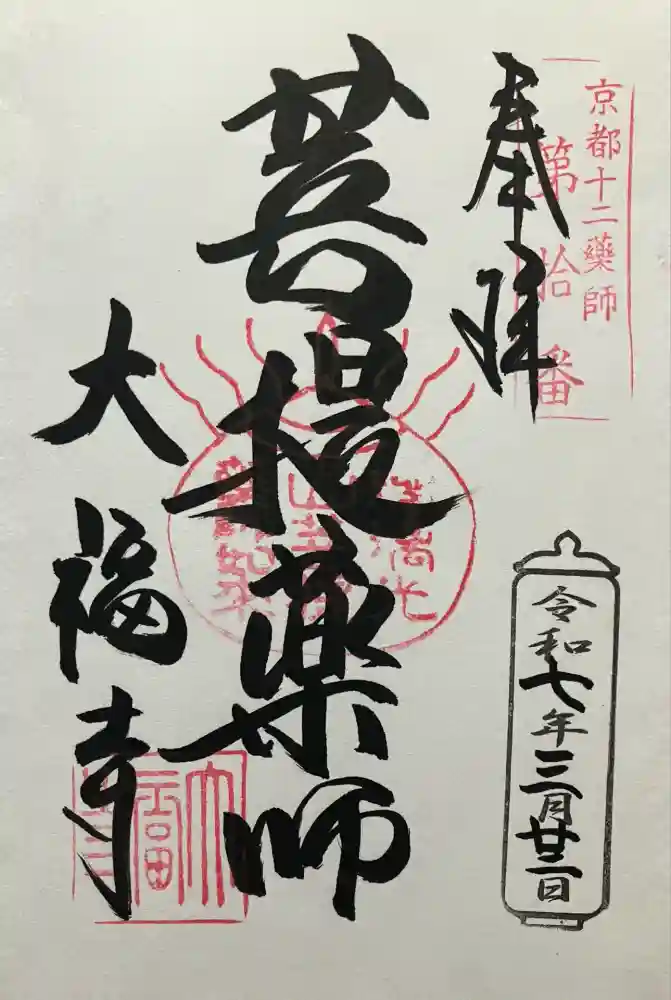 京都十二薬師
第拾番
奉拝
令和七年三月廿二日
菩提薬師
大福寺
大福寺